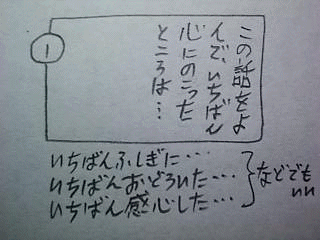 1
この話をよ
んで、いちばん
心にのこった
ところは…
いちばんふしぎに・・・
いちばんおどろいた・・・
いちばん感心した・・・
などでも
いい